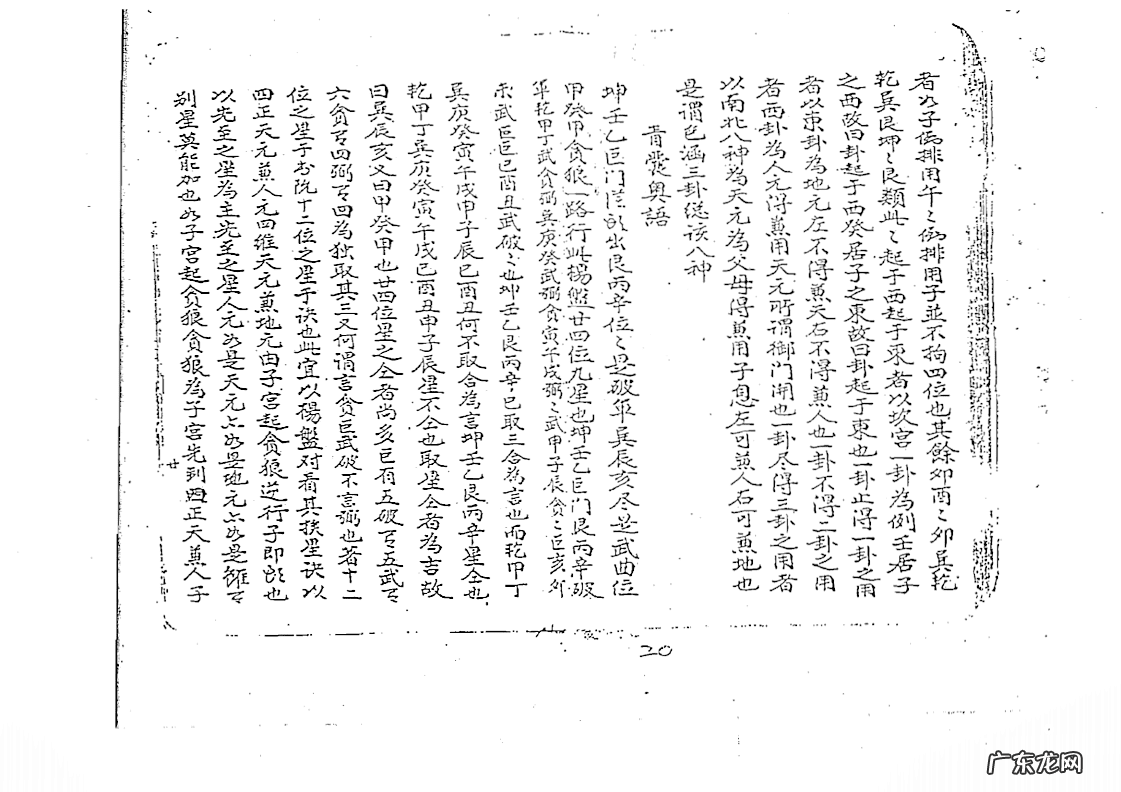 者如子偶排用午〻偶排用子並不拘四位也其餘卯酉〻卯巽乾
乾巽艮坤〻艮類此〻起于西起于東者以坎宮一卦為例壬居子
之西故曰卦起于西癸居子之東故曰卦起于東也一卦止得一卦之用
者以東卦為地元左不得兼天右不得兼人也一卦不得二卦之用
者西卦為人元得兼用天元所謂御門開也一卦尽得三卦之用者
以南北八神為天元為父母得兼用子息左可兼人右可兼地也
是謂包涵三卦総该八神
青囊奧語
坤壬乙巨門從頭出艮丙辛位〻是破军巽辰亥尽是武曲位
甲癸申貪狼一路行此楊盤廿四位九星也坤壬乙巨门艮丙辛破
军乾甲丁武貪弼巽庚癸武弼貪寅午戌弼〻武甲子辰貪〻巨亥夘
未武巨巨巳酉丑武破〻也坤壬乙艮丙辛已取三合為言也而乾甲丁
巽庚癸寅午戌申子辰巳酉丑何不取合為言坤壬乙艮丙辛星仝也
乾甲丁巽庚癸寅午戌巳酉丑申子辰星不仝也取星仝者為吉故
曰巽辰亥又曰甲癸申也廿四位星之仝者尚多巨有五破有五武有
六貪有四弼有四為独取其三又何謂言貪巨武破不言弼也著十二
位之星于书院十二位之星于诀也此宜以楊盤对看其挨星诀以
四正天元兼人元四維天元兼地元由子宮起貪狼逆行子即頭也
以先至之星為主先至之星人元如是天元亠如是地元亠如是雖有
别星莫能加也如子宮起貪狼貪狼為子宮先到四正天兼人子
廿
20
广东龙网